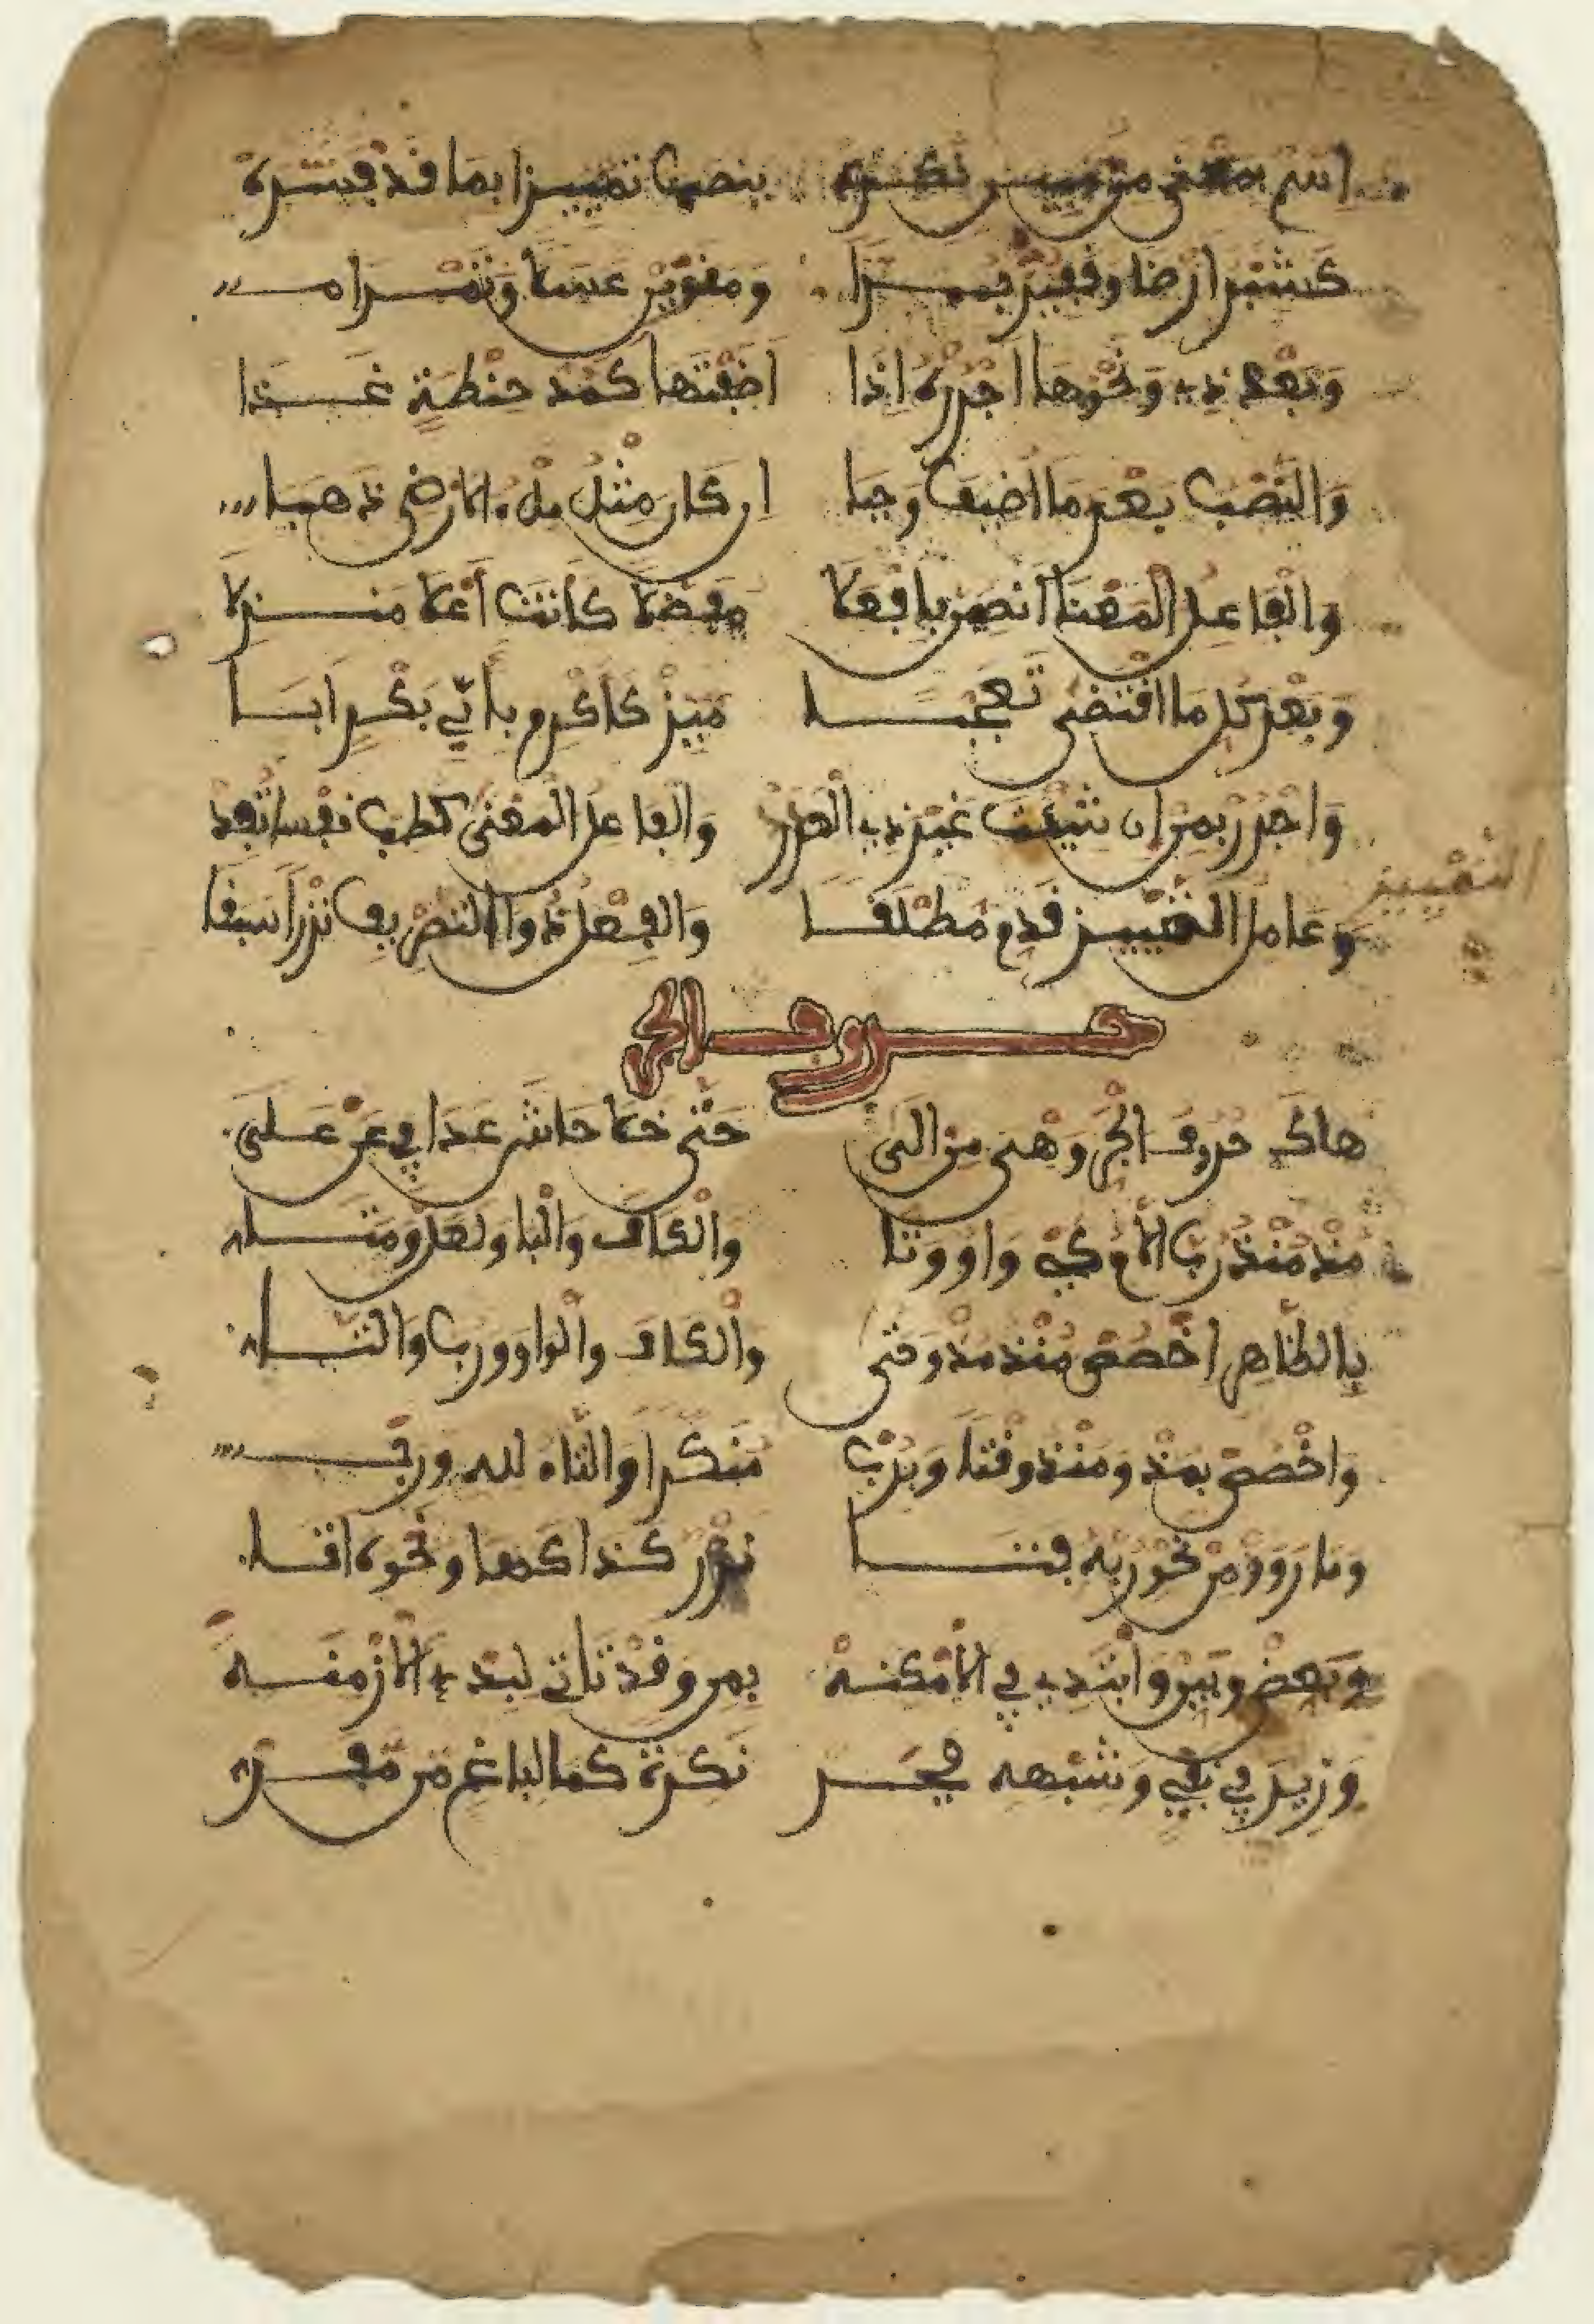 اسْم بمَعْنى من مُبِين نَكِرَهْ ينصب تمييزا بما قد فسّره
كشبر ارضا وقفيز برّا ومنوين عسلا وتمرا
وبعد ذي ونحوها اجرره اذا اضفتها كمد حنطة غذا
والنصب بعد ما اضيف وجبا ان كان مثل ملء الارض ذهبا
والفاعل المعنا انصبن بافعلا مفضلا كانت اعلا منزلا
وبعد كل ما اقتضى تعجبا ميز كاكرم بأبي بكر ابا
واجرر بمن ان شئت غير ذي العدد والفاعل المعنى كطب نفسا تفد
وعامل التمييز قدم مطلقا والفعل ذو التصريف نزرا سبقا
التمييز
حروف الجر
هاك حروف الجر وهي من الى حتى خلا حاشى عدا في عن على
مذ منذ رب اللام كي واو وتا والكاف والبا ولعل ومتى
بالظاهر اخصص منذ مذ وحتى والكاف والواو ورب والتا
واخصص بمذ ومنذ وقتا وبرب منكرا والتاء لله ورب
وما رووا من نحو ربه فتا نزر كذا كها ونحوه اتا
وبعض وبين وابتدي في الامكنه بمن وقد تاتي لبدء الازمنه
وزيد في نفي وشبهه فجر نكرة كما لباغ من مفر